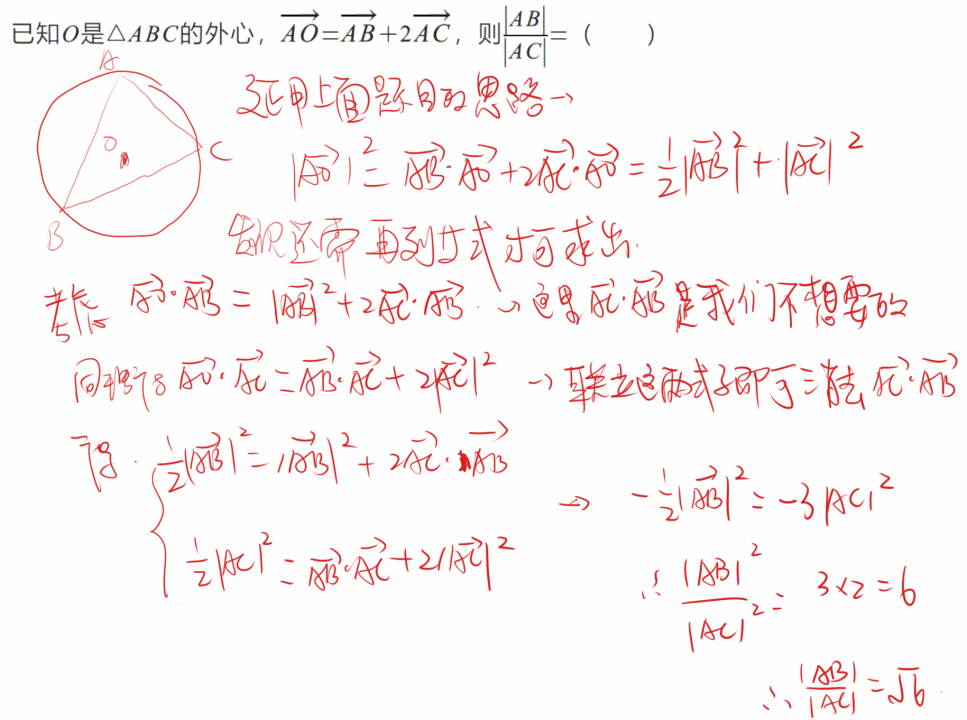 已知O是△ABC的外心，$\overrightarrow{AO}=\overrightarrow{AB}+2\overrightarrow{AC}$，则$\frac{|AB|}{|AC|}$=（　　）
A
O
C
B
延用上面题目的思路→
$|\overrightarrow{AO}|^2=\overrightarrow{AB}\cdot\overrightarrow{AO}+2\overrightarrow{AC}\cdot\overrightarrow{AO}=\frac{1}{2}|\overrightarrow{AB}|^2+|\overrightarrow{AC}|^2$
发现还需再列方式才可求出.
考虑 $\overrightarrow{AO}\cdot\overrightarrow{AB}=|\overrightarrow{AB}|^2+2\overrightarrow{AC}\cdot\overrightarrow{AB}$. → 这里$\overrightarrow{AC}\cdot\overrightarrow{AB}$是我们不想要的
同理得$\overrightarrow{AO}\cdot\overrightarrow{AC}=\overrightarrow{AB}\cdot\overrightarrow{AC}+2|\overrightarrow{AC}|^2$ → 联立这两式子即可消去$\overrightarrow{AC}\cdot\overrightarrow{AB}$
得. $\frac{1}{2}|\overrightarrow{AB}|^2=|\overrightarrow{AB}|^2+2\overrightarrow{AC}\cdot\overrightarrow{AB}$
$\frac{1}{2}|AC|^2=\overrightarrow{AB}\cdot\overrightarrow{AC}+2|\overrightarrow{AC}|^2$
→ $-\frac{1}{2}|\overrightarrow{AB}|^2=-3|AC|^2$
∴ $\frac{|AB|^2}{|AC|^2}=3×2=6$
∴ $\frac{|AB|}{|AC|}=\sqrt{6}$